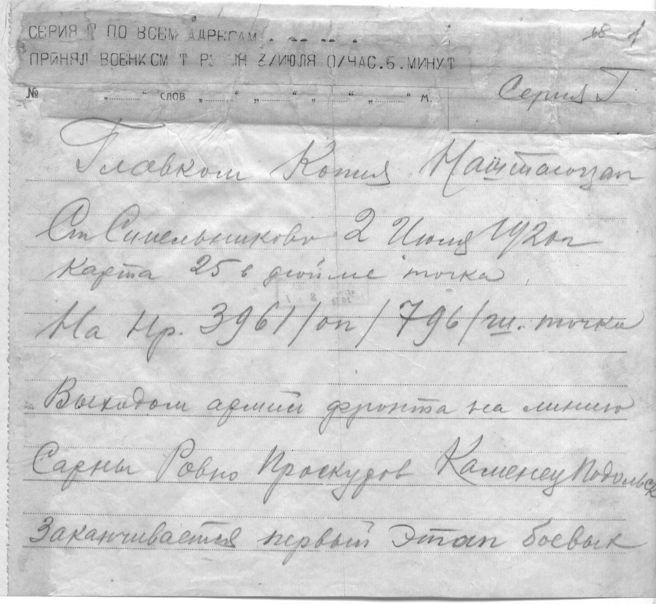 СЕРИЯ Г ПО ВСЕМ АДРЕСАМ
68 1
ПРИНЯЛ ВОЕНКОМ Т 3/ИЮЛЯ 0/ЧАС.5.МИНУТ
№ " слов " " " " м.
Серия Г
Главком Копия Наштаюзап
Ст Синельниково 2 Июля 1920г
карта 25 в дюйме точка
На Нр. 3961/оп/796/ш. точка
Выходом армий фронта на линию
Сарны Ровно Проскуров Каменец Подольск
Заканчивается первый этап боевых